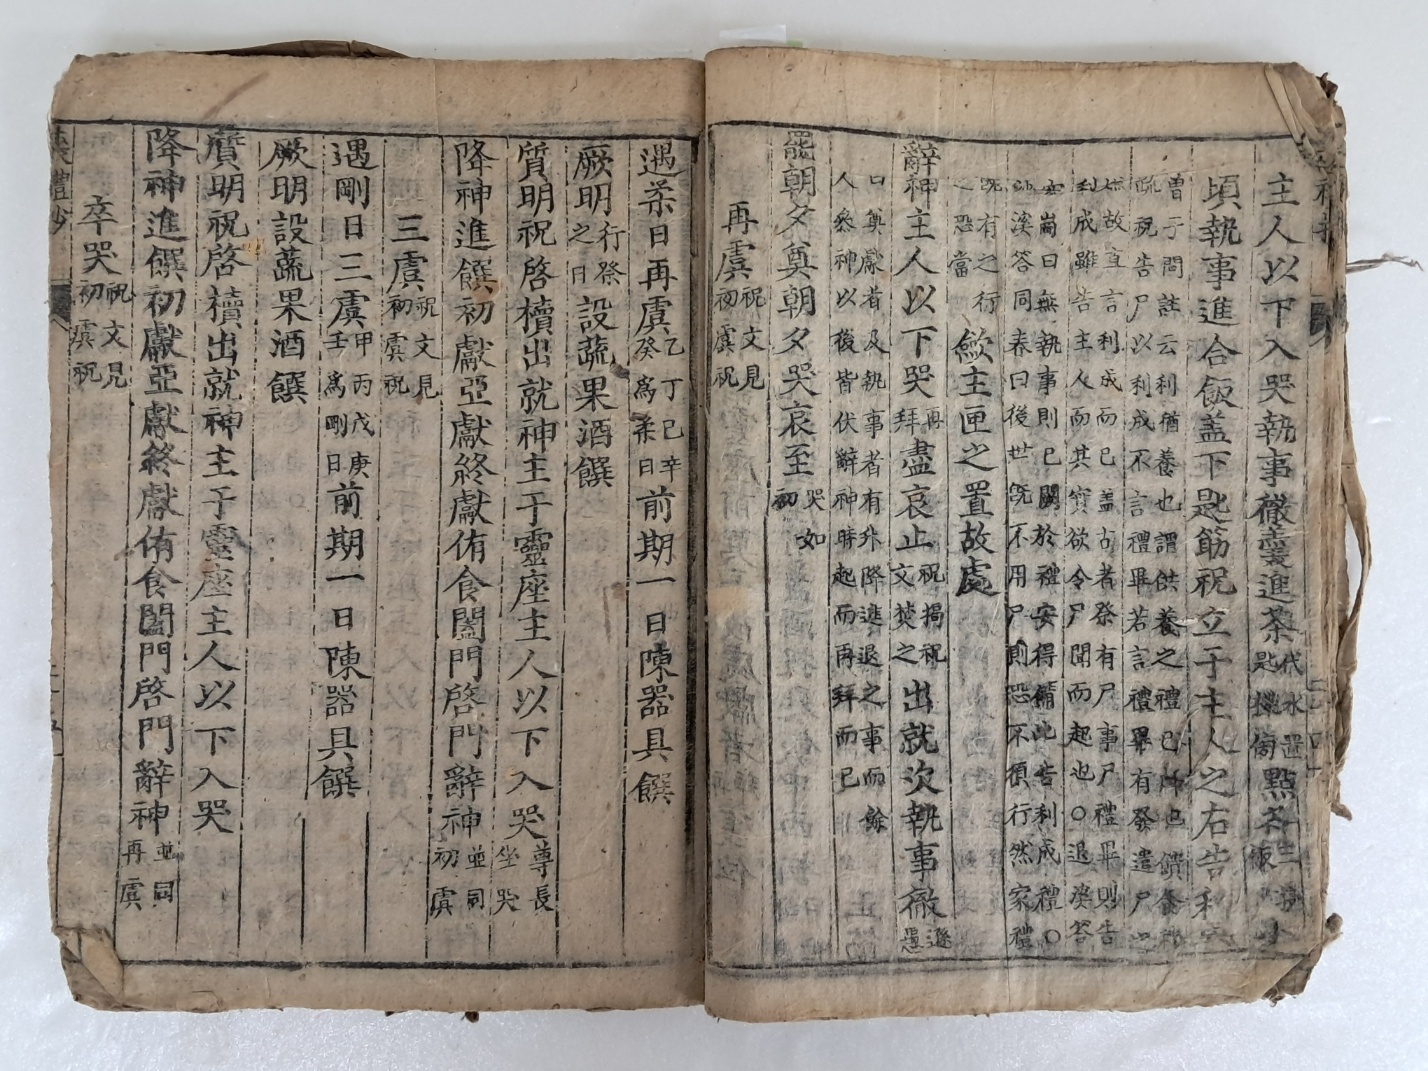 主人以下入哭執事徹羹進茶代水匙
頃執事進合飯盖下匙筯祝立于主人之右告利
曾子問註云利猶養也謂供養之禮已
祝告尸以利成不言禮畢若言禮畢有發遣尸
故直言利成而已盖古者祭有尸事尸禮畢則告
利成雖告主人而其實欲令尸聞而起也○退溪答
曰無執事則已闕於禮安得備此告利成禮○
沙溪答同春曰後世旣不用尸則恐不須行然家禮
旣有之行
之恐當
斂主匣之置故處
辭神主人以下哭再拜盡哀止祝揭祝文焚之出就次執事徹
奠獻者及執事者有升降進退之事而餘
人叅神以後皆伏辭神時起而再拜而已
罷朝夕奠朝夕哭哀至哭如初
再虞祝文見初虞祝
遇柔日再虞乙丁己辛癸爲柔日前期一日陳器具饌
厥明行祭之日設蔬果酒饌
質明祝啓櫝出就神主于靈座主人以下入哭尊長坐哭
降神進饌初獻亞獻終獻侑食闔門啓門辭神並同初虞
三虞祝文見初虞祝
遇剛日三虞甲丙戊庚壬爲剛日前期一日陳器具饌
厥明設蔬果酒饌
質明祝啓櫝出就神主于靈座主人以下入哭
降神進饌初獻亞獻終獻侑食闔門啓門辭神並同再虞
卒哭祝文見初虞祝
禮抄